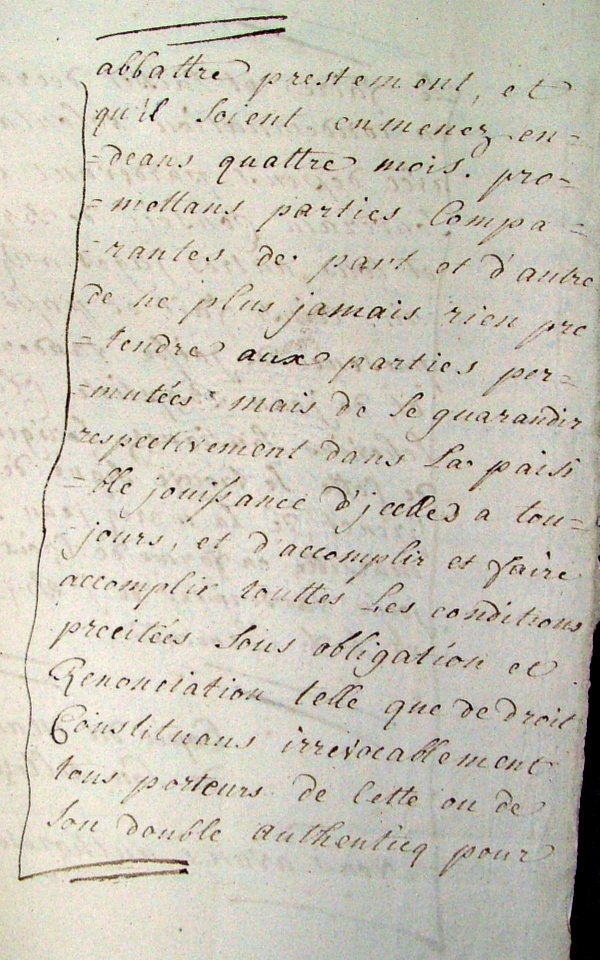 abbattre prestement, et
qu'il soient enmenez en=
=deans quattre mois. pro=
=mettans parties Compa=
=rantes de part et d'autre
de ne plus jamais rien pre
=tendre aux parties per=
=mutées mais de se guarandir
respectivement dans La paisi
=ble jouissance d'jcelles a tou=
=jours, et d'accomplir et faire
accomplir touttes Les conditions
precitées sous obligation et
Renonciation telle que de droit
Constituans irrevocablement
tous porteurs de Cette ou de
son double authenticq pour